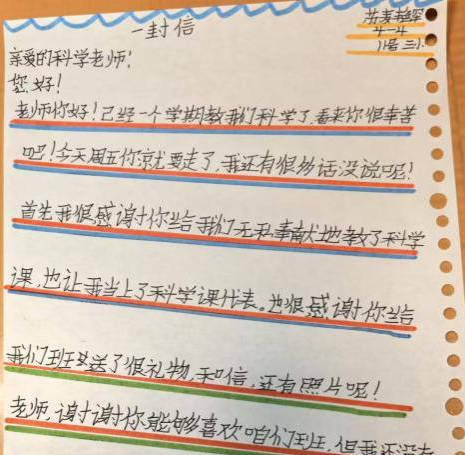 一封信
四-4
亲爱的科学老师:
您好!
老师你好!已经一个学期教我们科学了,看来你很辛苦
吧!今天周五你就要走了,我还有很多话没说呢!
首先我很感谢你给我们无私奉献地教了科学
课,也让我当上了科学课代表。也很感谢你给
我们班级送了很礼物,和信,还有照片呢!
老师,谢谢你能够喜欢咱们班,但我还没有